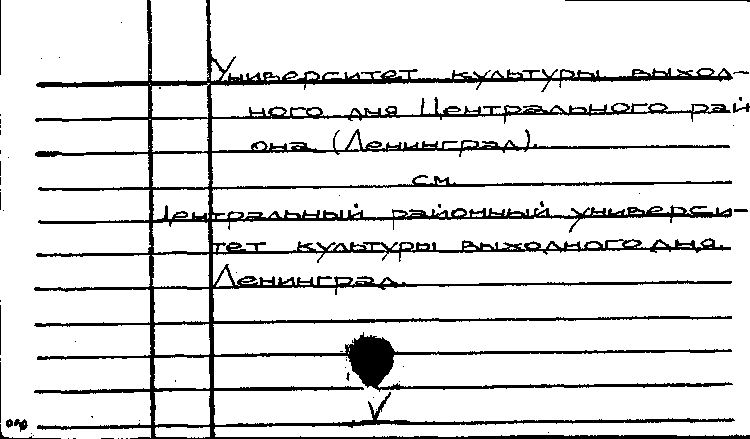 Университет культуры выход-
ного дня Центрального рай
она (Ленинград).
см.
Центральный районный универси-
тет культуры выходного дня.
Ленинград.